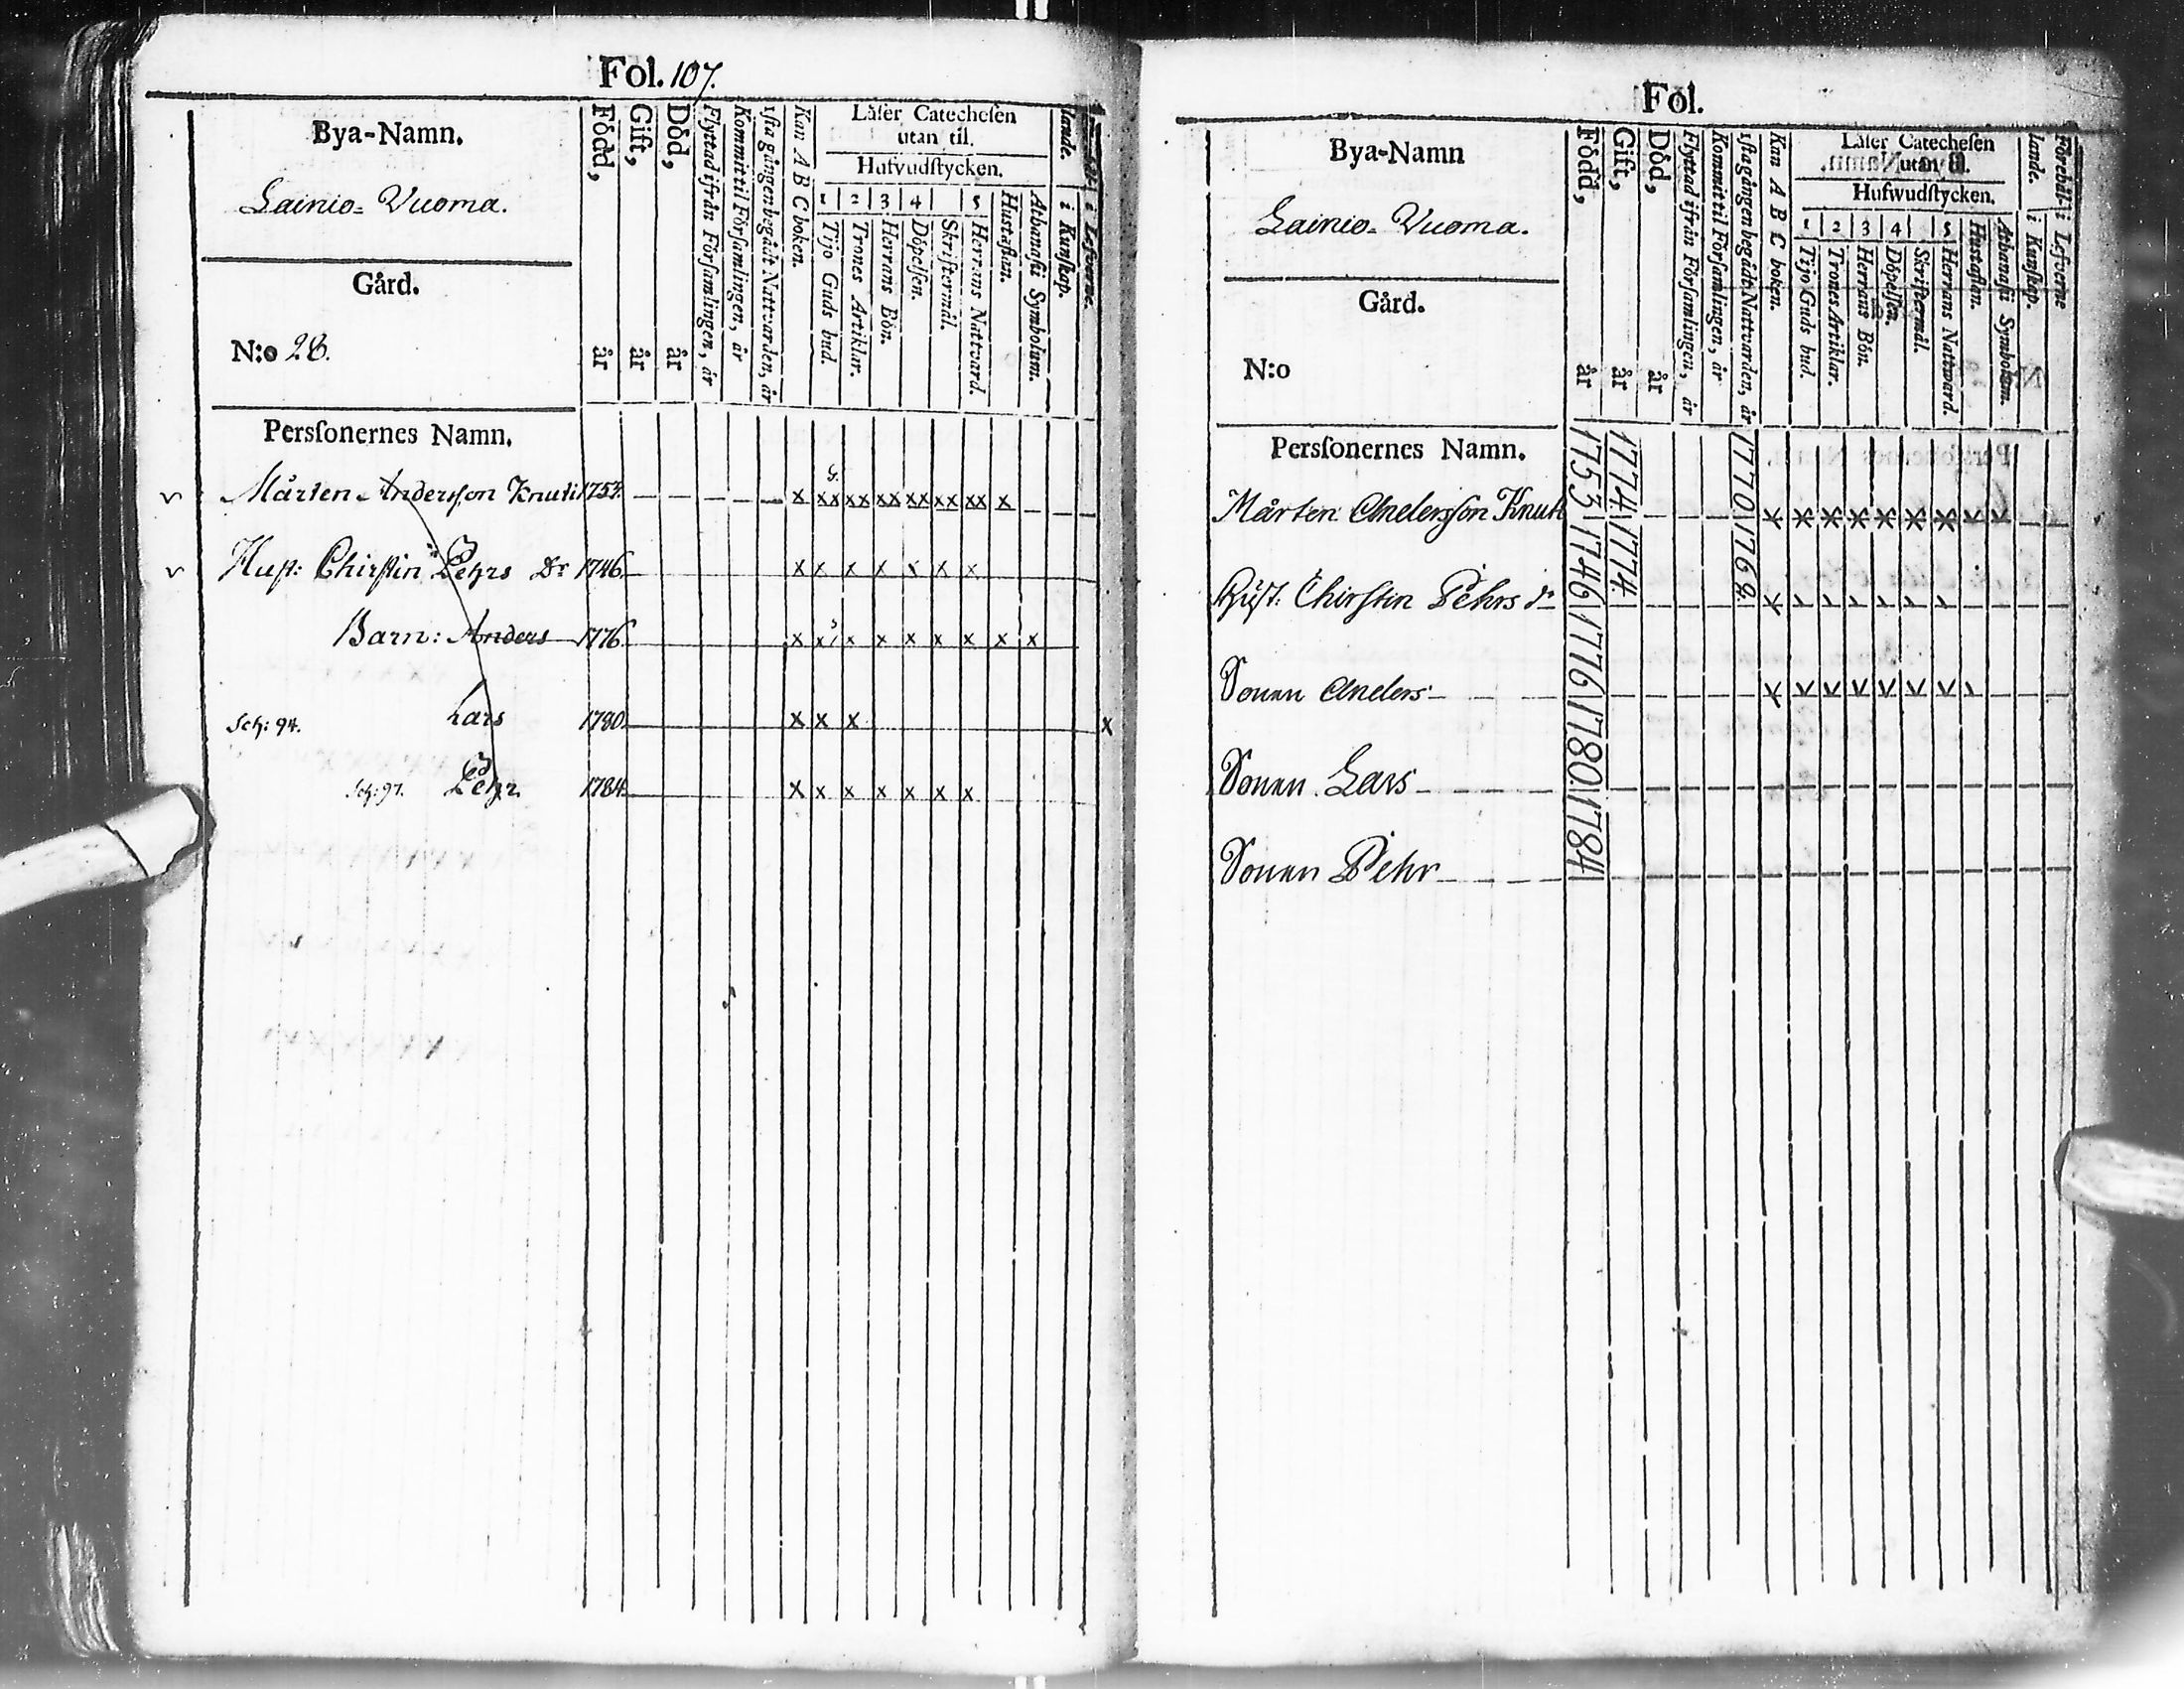 Fol. 107.
Bya-Namn.
Lainio-Vuoma.
Gård.
N:o 28.
Född, år
Gift, år
Död, år
Flyttad ifrån Församlingen, år
Kommit til Församlingen, år
1sta gången begådt Nattvarden, år
Kan A B C boken.
Läser Catechesen
utan til.
Hufvudstycken.
1 2 3 4 5
Tijo Guds bud.
Trones Artiklar.
Herrans Bön.
Döpelsen.
Skriftermål.
Herrans Nattvard.
Hustaflan.
Athanasii Symbolum.
lande. i Kunskap.
i Lefverne.
Persfonernes Namn.
v Mårten Andersson Knuti 1753. x xx xx xx xx xx xx x
v Hust: Chirstin Pehrs Dr 1746. x x x x x x x
Barn: Anders 1776. x x x x x x x x x
Sch: 94. Lars 1780. x x x x
Sch: 97. Pehr 1784. x x x x x x x
Fol.
Bya-Namn
Lainio-Vuoma.
Gård.
N:o
Född, år
Gift, år
Död, år
Flyttad ifrån Församlingen, år
Kommit til Församlingen, år
1sta gången begådt Nattvarden, år
Kan A B C boken.
Läser Catechesen
utan til.
Hufwudstycken.
1 2 3 4 5
Tijo Guds bud.
Trones Artiklar.
Herrans Bön.
Döpelsen.
Skriftermål.
Herrans Nattward.
Hustaflan.
Athanasii Symbolum.
lande. i Kunskap.
Förehål- i Lefverne
Persfonernes Namn.
Mårten Andersson Knuti 1753 1774 1770
Hust. Chirstin Pehrs dr 1746 1774 1768
Sonen Anders 1776
Sonen Lars 1780
Sonen Pehr 1784